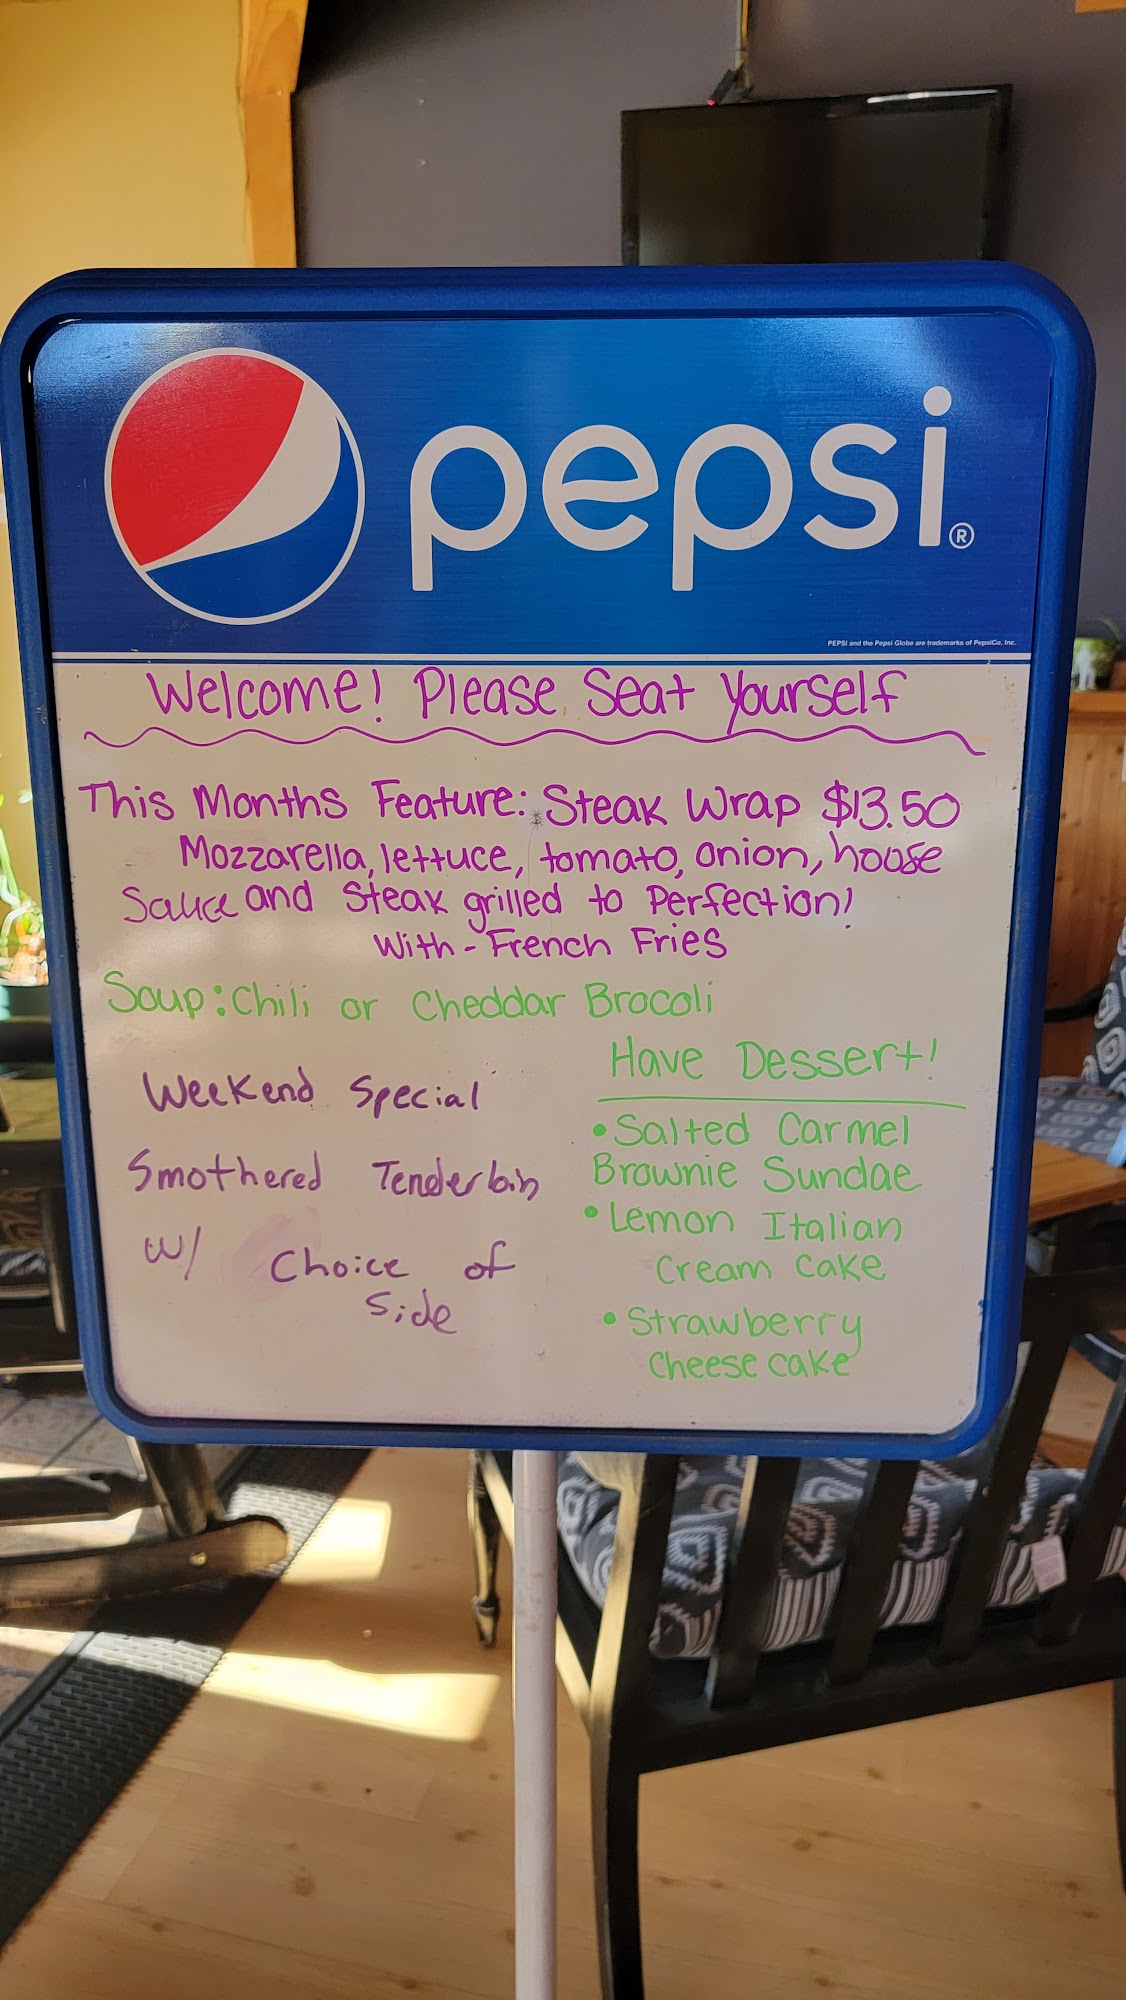 pepsi®
PEPSI and the Pepsi Globe are trademarks of PepsiCo, Inc.
Welcome! Please Seat Yourself
This Months Feature: Steak Wrap $13.50
Mozzarella, lettuce, tomato, onion, house
Sauce and Steak grilled to Perfection!
With - French Fries
Soup: Chili or Cheddar Brocoli
Weekend Special
Smothered Tenderloin
w/ Choice of
Side
Have Dessert!
• Salted Carmel
Brownie Sundae
• Lemon Italian
Cream Cake
• Strawberry
Cheese cake